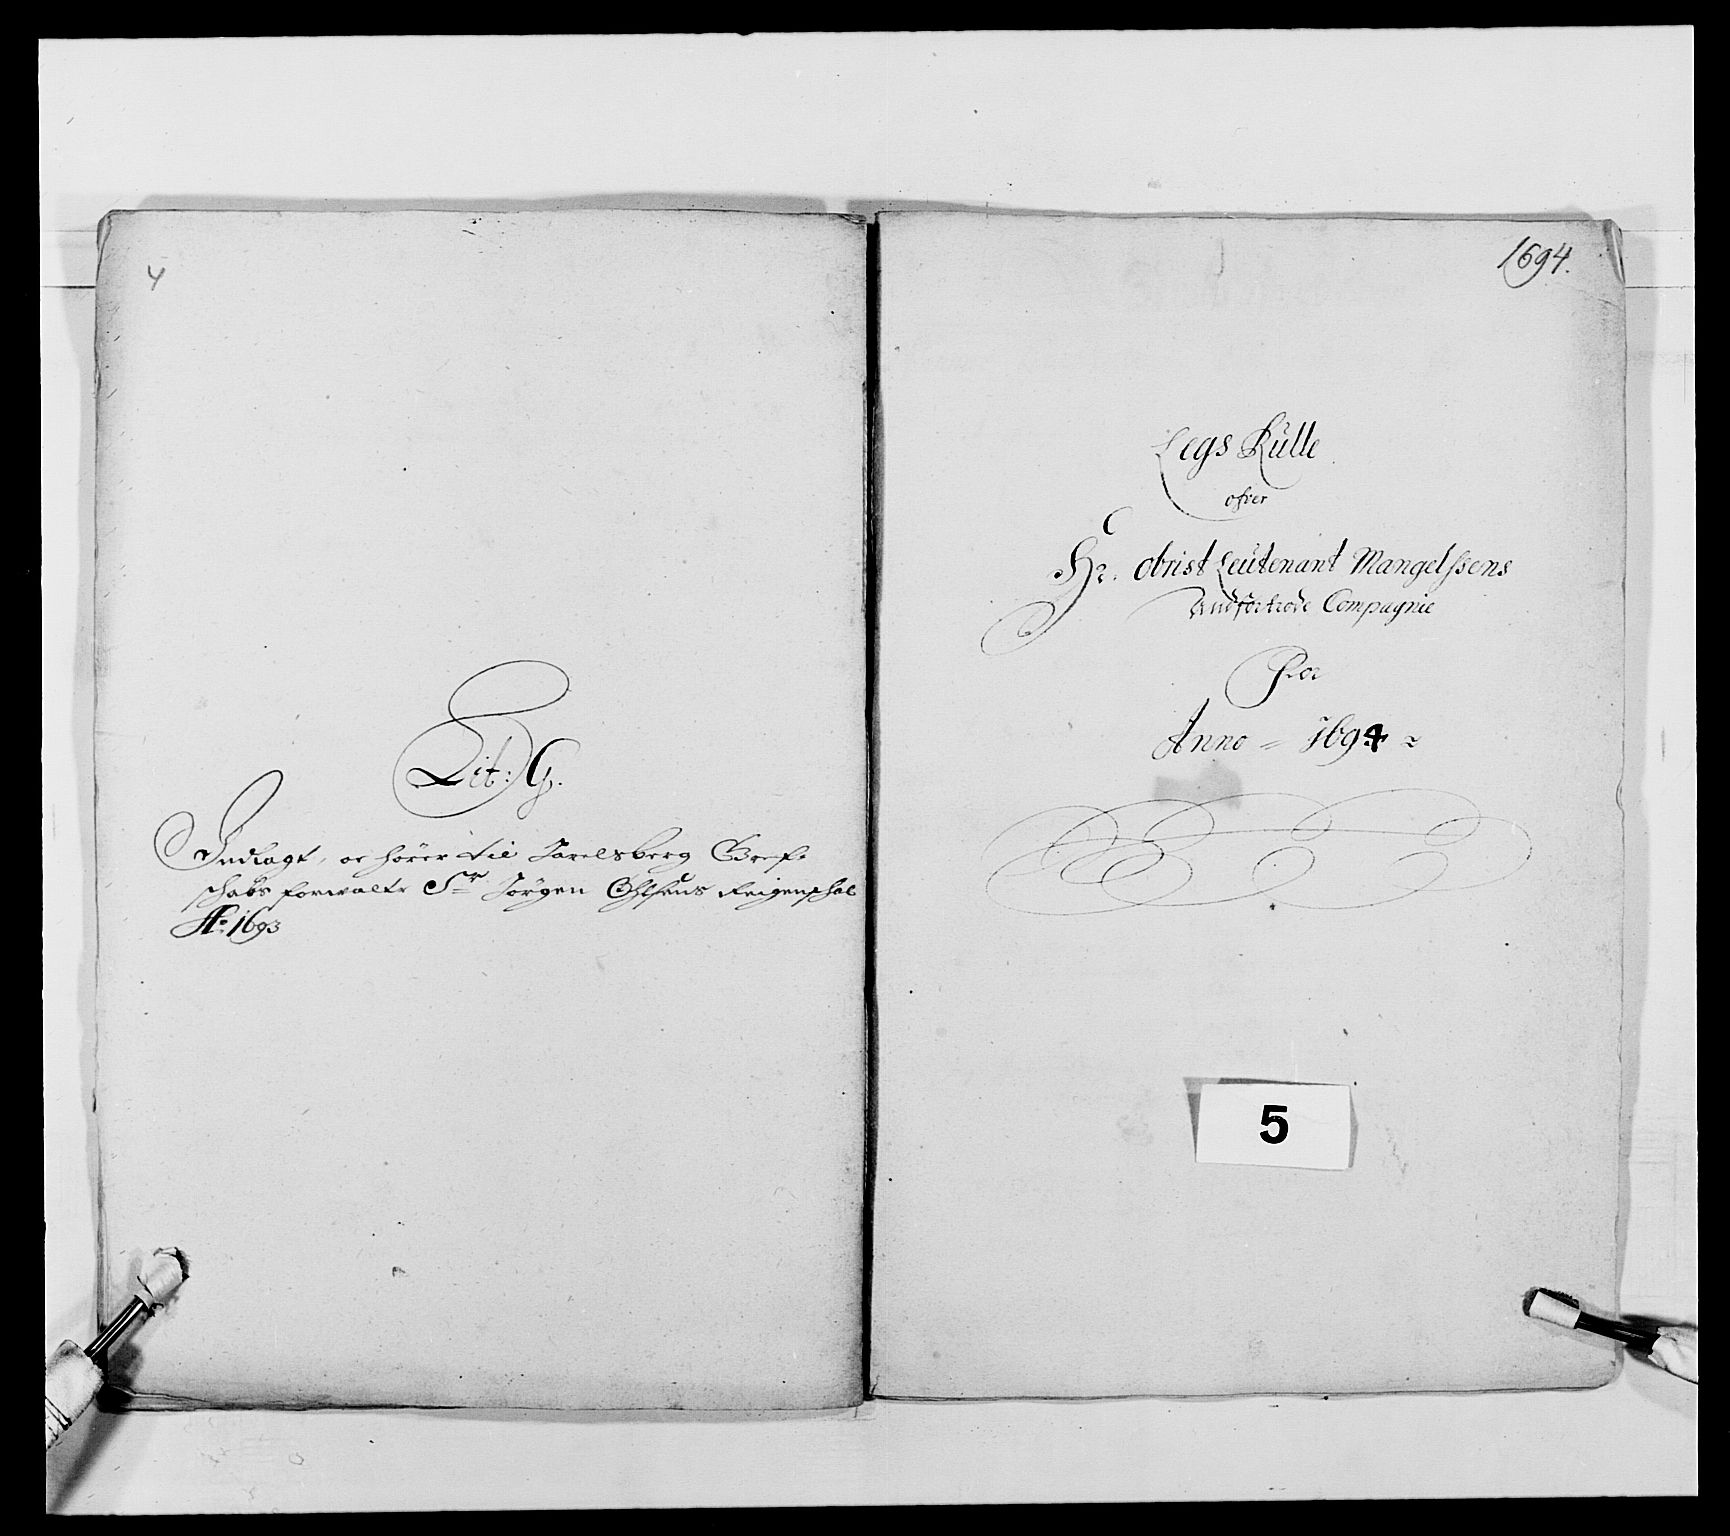 4
Lit: G.
Indlagt, oc hører til Jarelsberg Gref-
schabs forwalter Sr Jørgen Ohlsens Reigenschab
Ao: 1693
1694.
Legs Rülle
ofver
Hr. obrist Leütenant Mangelssens
Andfortrode Compagnie
For
Anno - 1694
5